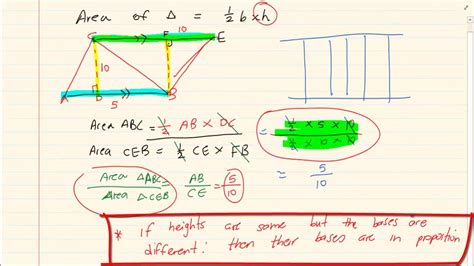 Area of Δ = 1/2 b x h
C 10 F E
10
A D 5 B
Area ABC = 1/2 AB x DC = 1/2 x 5 x 10
Area CEB = 1/2 CE x FB 1/2 x 10 x 10
Area ΔABC = AB = 5 = 5
Area ΔCEB CE 10 10
* If heights are same but the bases are
different: then their bases are in proportion